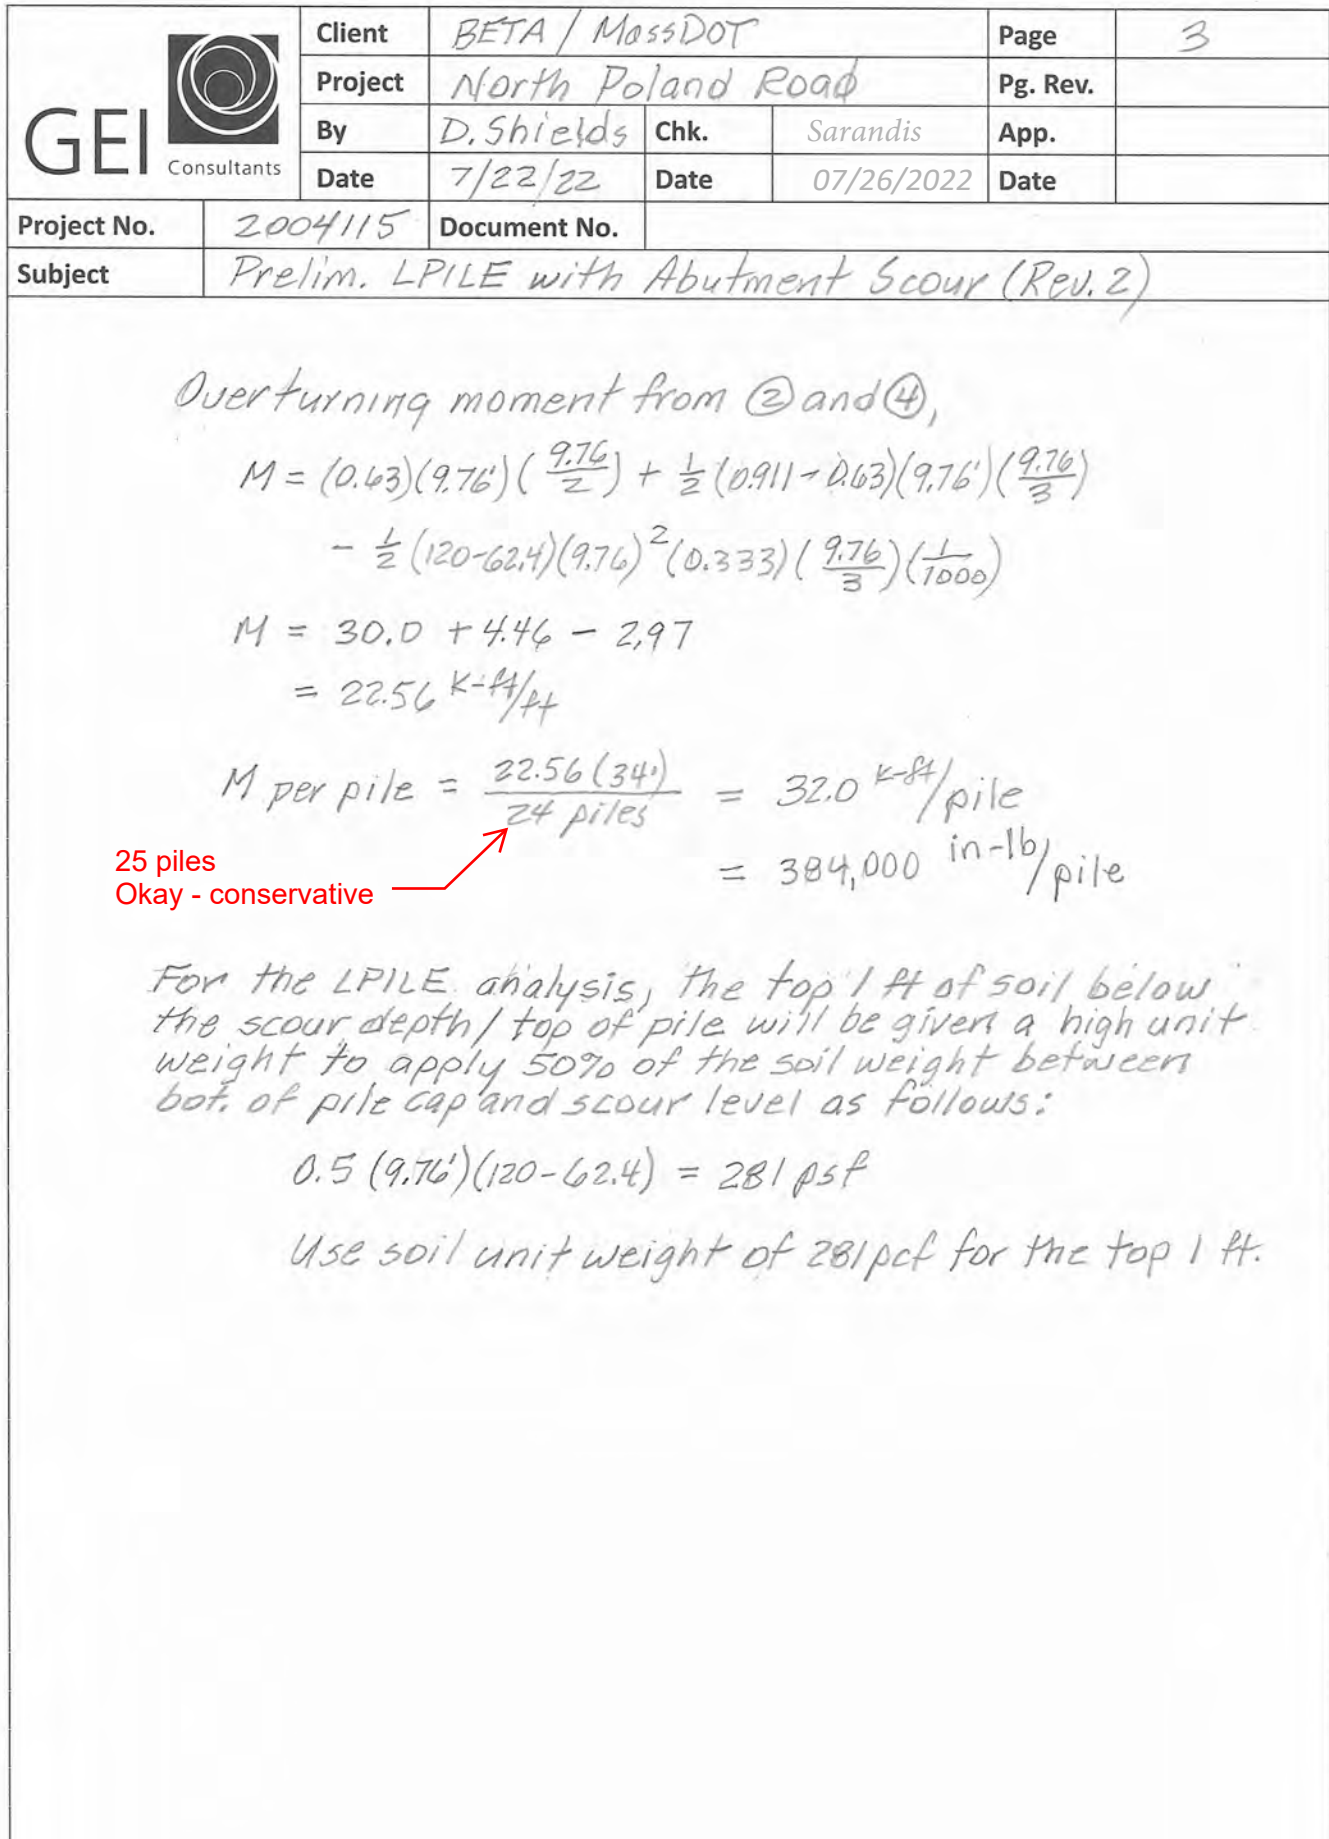 GEI Consultants
Client BETA / MassDOT Page 3
Project North Poland Road Pg. Rev.
By D. Shields Chk. Sarandis App.
Date 7/22/22 Date 07/26/2022 Date
Project No. 2004115 Document No.
Subject Prelim. LPILE with Abutment Scour (Rev. 2)
Overturning moment from ② and ④,
M = (0.63)(9.76')(9.76/2) + 1/2 (0.911-0.63)(9.76')(9.76/3)
- 1/2 (120-62.4)(9.76)²(0.333)(9.76/3)(1/1000)
M = 30.0 + 4.46 - 2.97
= 22.56 k-ft/ft
M per pile = 22.56 (34')/24 piles = 32.0 k-ft/pile
25 piles
Okay - conservative
= 384,000 in-lb/pile
For the LPILE analysis, the top 1 ft of soil below
the scour depth / top of pile will be given a high unit
weight to apply 50% of the soil weight between
bot. of pile cap and scour level as follows:
0.5 (9.76')(120-62.4) = 281 psf
Use soil unit weight of 281 pcf for the top 1 ft.